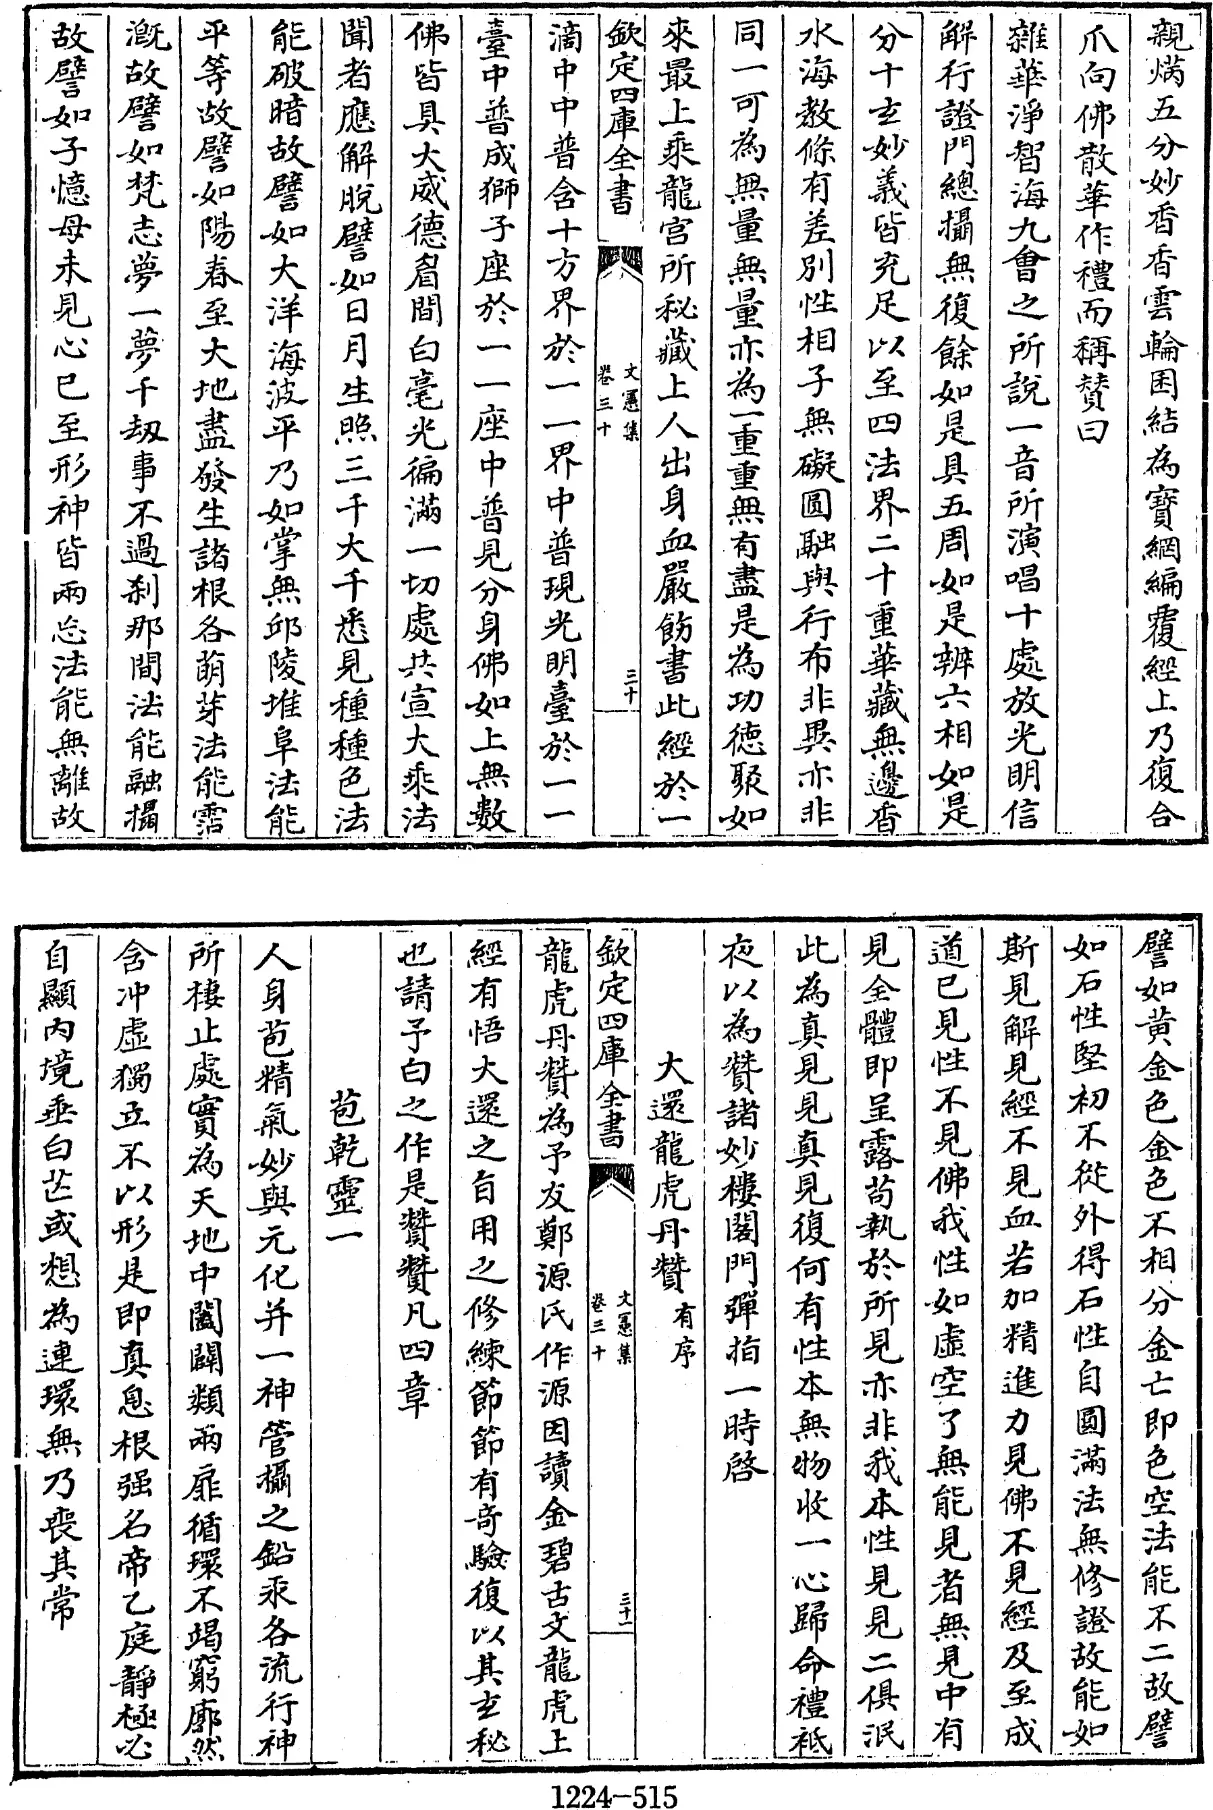 親爇五分妙香香雲輪囷結為寶網編覆經上乃復合
爪向佛散華作禮而稱賛曰
雜華淨智海九會之所說一音所演唱十處放光明信
解行證門總攝無復餘如是具五周如是辨六相如是
分十玄妙義皆充足以至四法界二十重華藏無邊香
水海教條有差別性相子無礙圓融與行布非異亦非
同一可為無量無量亦為一重重無有盡是為功德聚如
來最上乘龍宮所秘藏上人出身血嚴飭書此經於一
欽定四庫全書
文憲集
卷三十
三十
滴中中普含十方界於一一界中普現光明臺於一一
臺中普成獅子座於一一座中普見分身佛如上無數
佛皆具大威德眉間白毫光徧滿一切處共宣大乘法
聞者應解脫譬如日月生照三千大千悉見種種色法
能破暗故譬如大洋海波平乃如掌無邱陵堆阜法能
平等故譬如陽春至大地盡發生諸根各萌芽法能霑
溉故譬如梵志夢一夢千刼事不過刹那間法能融攝
故譬如子憶母未見心已至形神皆兩忘法能無離故
譬如黃金色金色不相分金亡即色空法能不二故譬
如石性堅初不從外得石性自圓滿法無修證故能如
斯見解見經不見血若加精進力見佛不見經及至成
道已見性不見佛我性如虛空了無能見者無見中有
見全體即呈露苟執於所見亦非我本性見見二俱泯
此為真見見真見復何有性本無物收一心歸命禮祗
夜以為贊諸妙樓閣門彈指一時啓
大還龍虎丹贊 有序
欽定四庫全書
文憲集
卷三十
三十一
龍虎丹贊為予友鄭源氏作源因讀金碧古文龍虎上
經有悟大還之旨用之修練節節有奇驗復以其玄秘
也請予白之作是贊贊凡四章
苞乾靈一
人身苞精氣妙與元化并一神管攝之鉛汞各流行神
所棲止處實為天地中闔闢類兩扉循環不竭窮廓然
含冲虛獨立不以形是即真息根强名帝乙庭靜極必
自顯內境垂白芒或想為連環無乃喪其常
1224—515